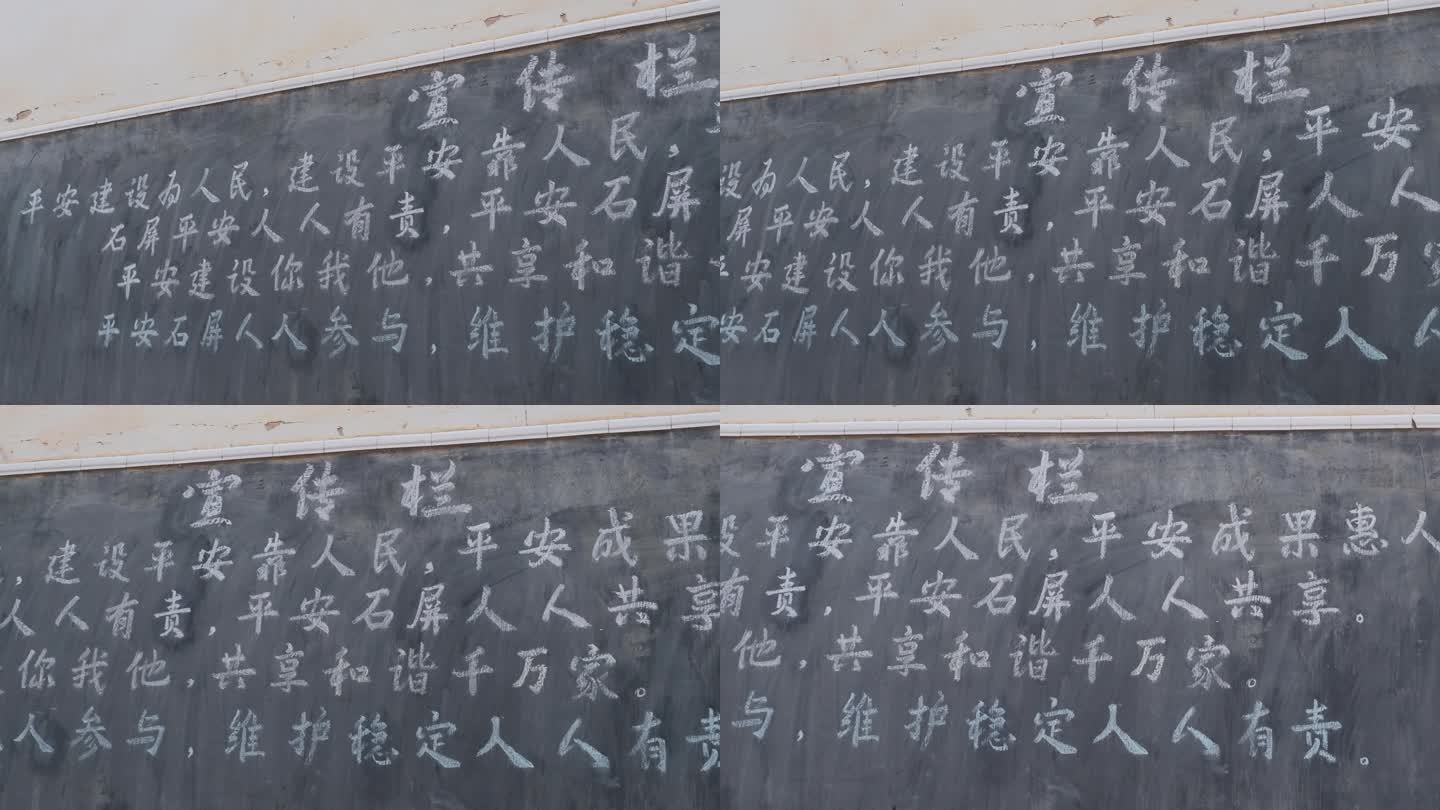 宣传栏
平安建设为人民，建设平安靠人民，
石屏平安人人有责，平安石屏
平安建设你我他，共享和谐
平安石屏人人参与，维护稳定
宣传栏
设为人民，建设平安靠人民，平安
屏平安人人有责，平安石屏人人
安建设你我他，共享和谐千万家
安石屏人人参与，维护稳定人人
宣传栏
，建设平安靠人民，平安成果
人人有责，平安石屏人人共享
你我他，共享和谐千万家。
人参与，维护稳定人人有责
宣传栏
设平安靠人民，平安成果惠人
有责，平安石屏人人共享。
他，共享和谐千万家。
与，维护稳定人人有责。